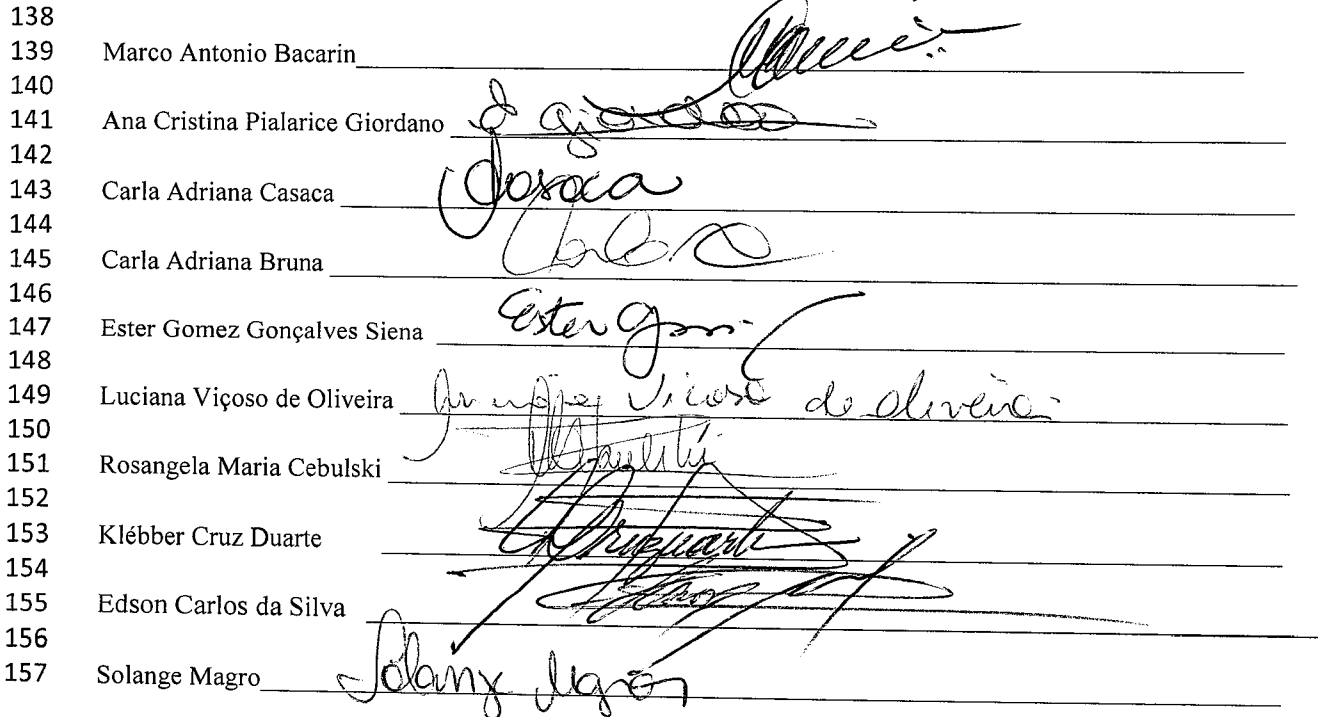 138
139 Marco Antonio Bacarin
140
141 Ana Cristina Pialarice Giordano giordano
142
143 Carla Adriana Casaca Casaca
144
145 Carla Adriana Bruna Carla
146
147 Ester Gomez Gonçalves Siena Ester
148
149 Luciana Viçoso de Oliveira Viçoso de oliveira
150
151 Rosangela Maria Cebulski
152
153 Klébber Cruz Duarte
154
155 Edson Carlos da Silva
156
157 Solange Magro